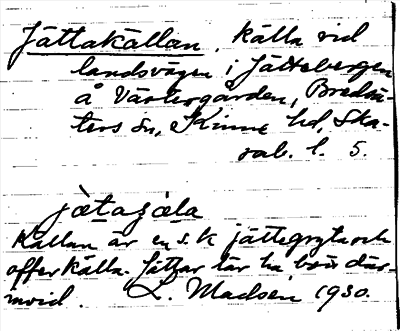 Jättakällan. Källa vid
landsvägen i Jättebergen
å Västergården, Bredsä-
ters sn, Kinne hd, Ska-
rab. l. 5.
jätaʒäla
Källan är en s.k jättegryta och
offerkälla. Jättar lär ha bott där-
invid. L. Madsen 1930.